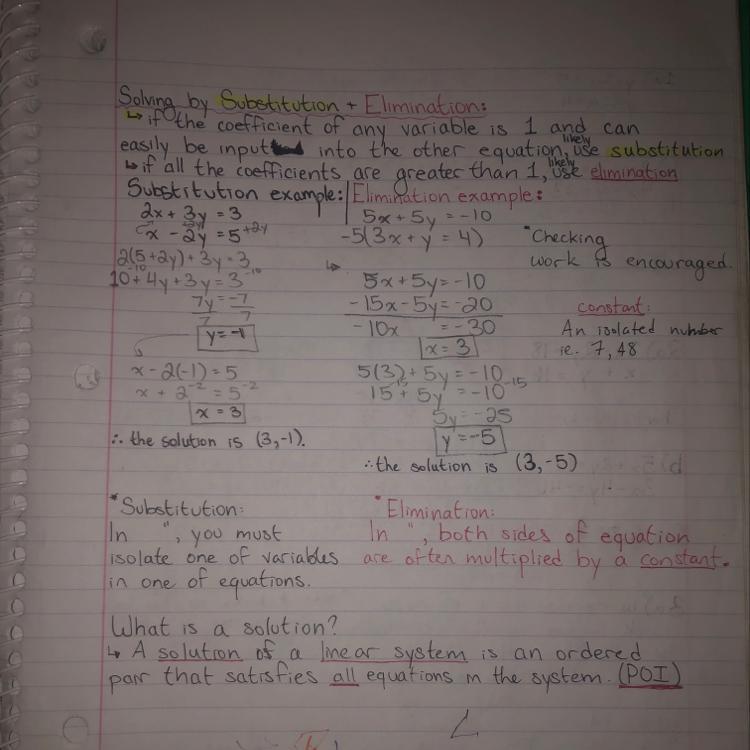 Solving by Substitution + Elimination:
↳ if the coefficient of any variable is 1 and can
easily be input into the other equation, likely use substitution
↳ if all the coefficients are greater than 1, likely use elimination
Substitution example:
2x + 3y = 3
x - 2y = 5 +2y
2(5+2y) + 3y = 3
10 + 4y + 3y = 3
-10 -10
7y = -7
7 7
y = -1
x - 2(-1) = 5
x + 2 -2 = 5 -2
x = 3
∴ the solution is (3,-1).
Elimination example:
5x + 5y = -10
-5(3x + y = 4)
↳
5x + 5y = -10
-15x - 5y = -20
-10x = -30
x = 3
5(3) + 5y = -10
15 -15 + 5y = -10 -15
5y = -25
y = -5
∴ the solution is (3, -5)
*Checking
work is encouraged.
constant:
An isolated number
ie. 7, 48
*Substitution:
In ", you must
isolate one of variables
in one of equations.
*Elimination:
In ", both sides of equation
are often multiplied by a constant.
What is a solution?
↳ A solution of a linear system is an ordered
pair that satisfies all equations in the system. (POI)